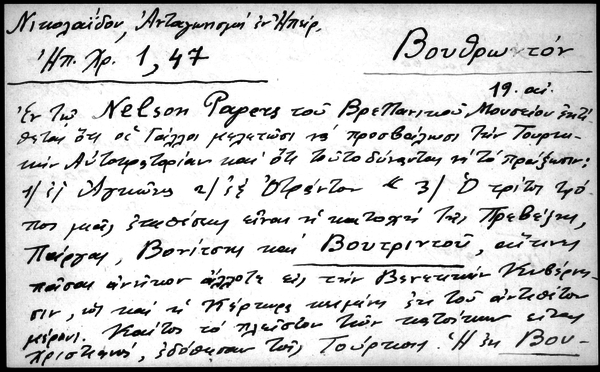 Νικολαΐδου, Ἀνταγωνισμοὶ ἐν Ἠπείρ.
Ἠπ. Χρ. 1, 47
Βουθρωτόν
19. αἰ.
Ἐν τῷ Nelson Papers τοῦ Βρετανικοῦ Μουσείου ἐκτί-
θεται ὅτι οἱ Γάλλοι μελετῶσι νὰ προσβάλωσι τὴν Τουρκι-
κὴν Αὐτοκρατορίαν καὶ ὅτι τοῦτο δύνανται νὰ τὸ πράξωσιν:
1) ἐξ Ἀγκῶνος 2) ἐξ Ὀτράντου " 3) Ὁ τρίτος τρό-
πος μιᾶς ἐπιθέσεως εἶναι ἡ κατοχὴ τῆς Πρεβέζης,
Πάργας, Βονίτσης καὶ Βουτριντοῦ, αἵτινες
πᾶσαι ἀνῆκον ἄλλοτε εἰς τὴν Βενετικὴν Κυβέρνη-
σιν, ὡς καὶ ἡ Κέρκυρα κειμένη ἐκ τοῦ ἀντιθέτου
μέρους. Καίτοι τὸ πλεῖστον τῶν κατοίκων εἶναι
χριστιανοί, ἐδόθησαν τοῖς Τούρκοις. Ἡ ἐκ Βου-